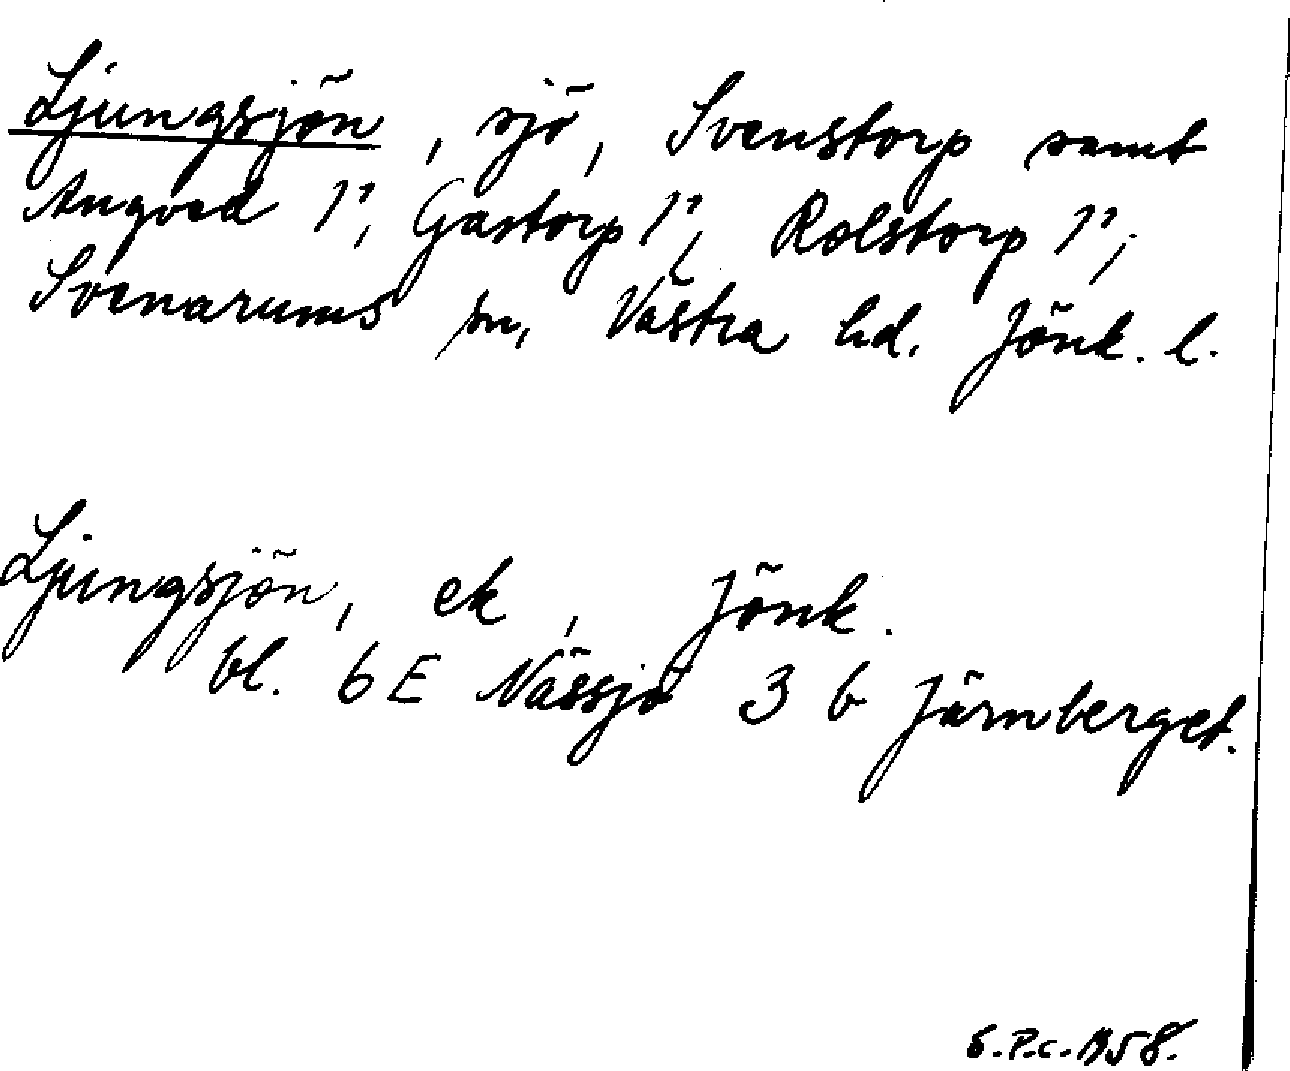 Ljungsjön, sjö, Svenstorp samt
Angved 1², Gastorp 1², Rolstorp 1²;
Svenarums sn, Västra hd. Jönk. l.
Ljungsjön, ek, Jönk.
bl. 6 E Nässjö 3 b Järnberget.
S.P.c. 1958.